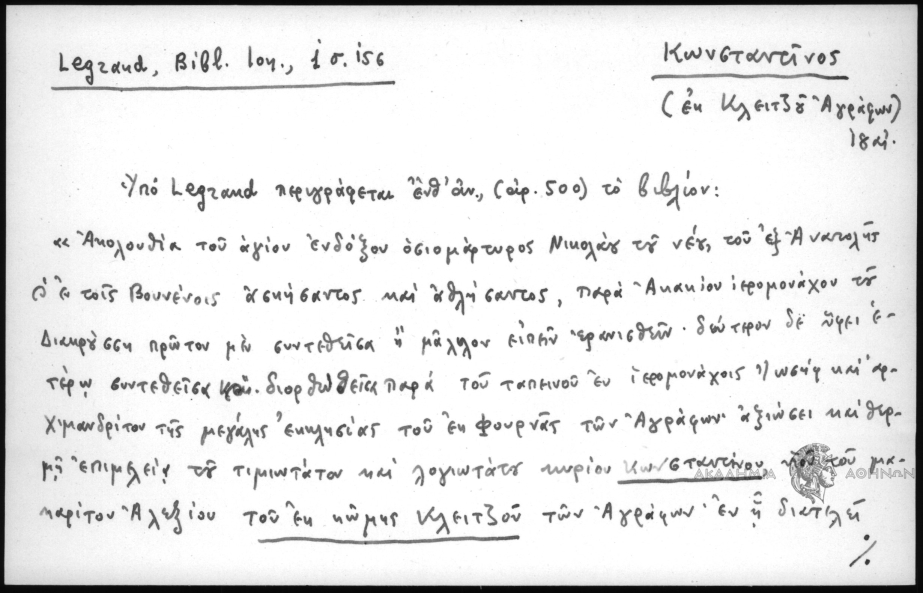 Legrand, Bibl. Ion., 1 σ. 156
Κωνσταντῖνος
(ἐκ Κλειτζοῦ Ἀγράφων)
Ὑπό Legrand περιγράφεται ἔνθ' ἀν., (ἀρ. 500) τὸ βιβλίον:
«Ἀκολουθία τοῦ ἁγίου ἐνδόξου ὁσιομάρτυρος Νικολάου τοῦ νέου, τοῦ ἐξ Ἀνατολῆς
ἐν τοῖς Βουνένοις ἀσκήσαντος καὶ ἀθλήσαντος, παρὰ Ἀκακίου ἱερομονάχου τοῦ
Διακρούση πρῶτον μὲν συντεθεῖσα ἢ μᾶλλον εἰπεῖν ἐρανισθεῖσα· δεύτερον δὲ ὕφει ἑ-
τέρῳ συντεθεῖσα καὶ διορθωθεῖσα παρὰ τοῦ ταπεινοῦ ἐν ἱερομονάχοις Ἰωσὴφ καὶ ἀρ-
χιμανδρίτου τῆς μεγάλης ἐκκλησίας τοῦ ἐκ Φουρνᾶς τῶν Ἀγράφων· ἀξιώσει καὶ θερ-
μῇ ἐπιμελείᾳ τοῦ τιμιωτάτου καὶ λογιωτάτου κυρίου Κωνσταντίνου, υἱοῦ τοῦ μα-
καρίτου Ἀλεξίου τοῦ ἐκ κώμης Κλειτζοῦ τῶν Ἀγράφων· ἐν ᾗ διατελεῖ
./.
ΑΚΑΔΗΜΙΑ ΑΘΗΝΩΝ